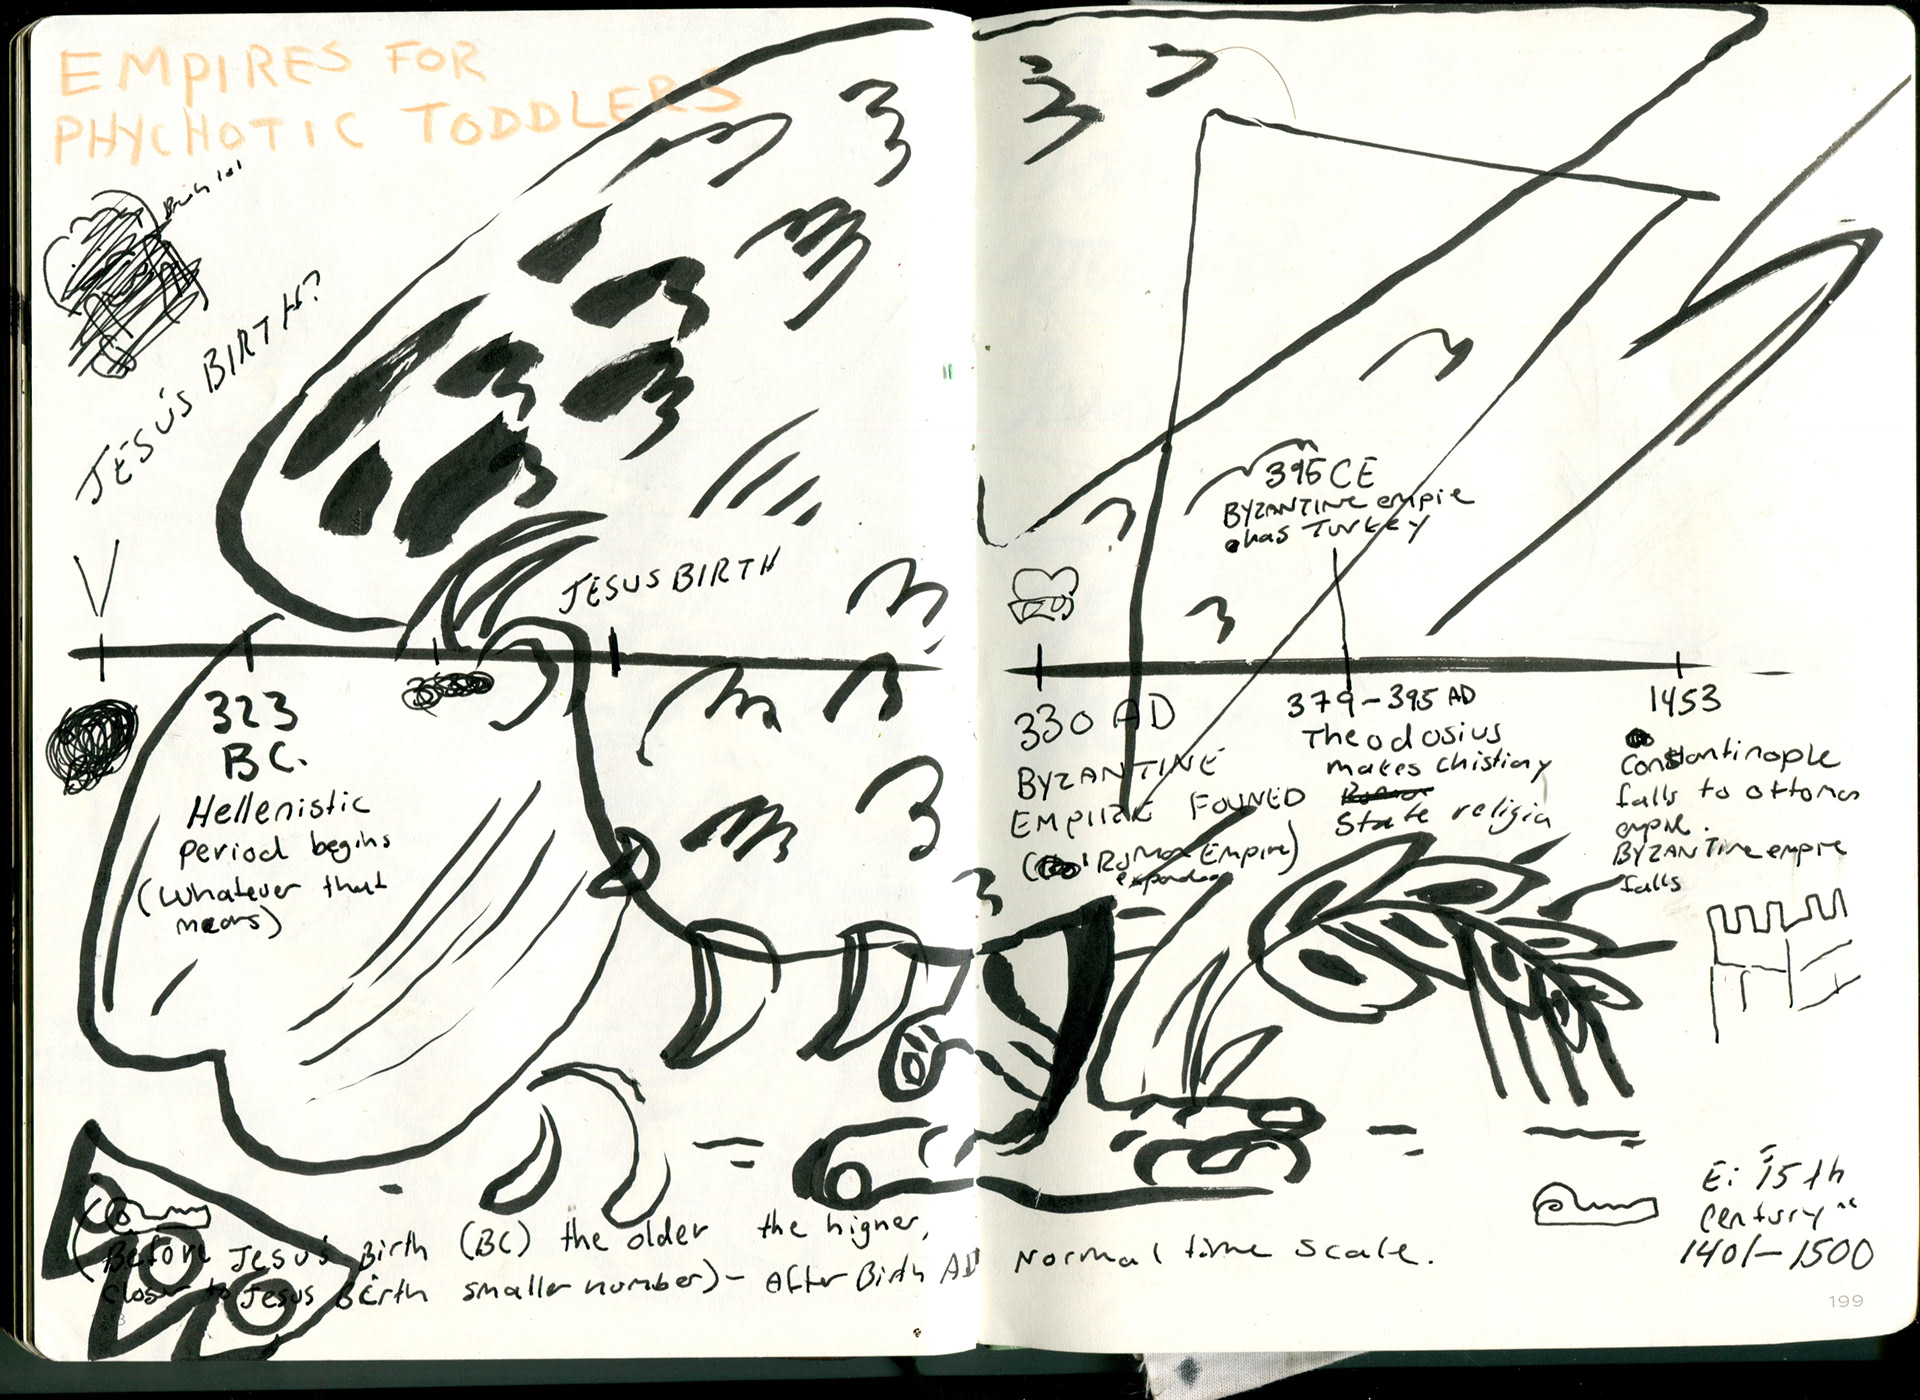 EMPIRES FOR
PHYCHOTIC TODDLERS
JESUS BIRTH?
JESUS BIRTH
323
BC.
Hellenistic
period begins
(whatever that
means)
395 CE
BYZANTINE empie
has Turkey
330 AD
BYZANTINE
EMPIRE FOUNED
(Roman Empire)
379-395 AD
Theodosius
makes chistiny
State religin
1453
Constantinople
falls to ottoman
empie.
BYZANTINE empire
falls
(Before Jesus Birth (BC) the older the higher,
closer to Jesus Birth smaller number) - After Birth AD Normal time scale.
Ei 15th
Century
1401-1500
199